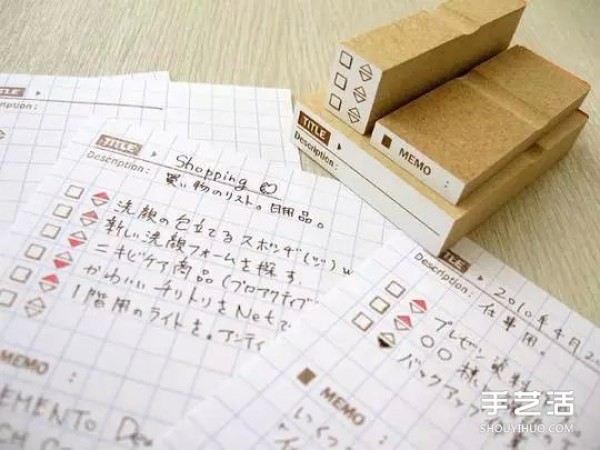 TITLE
Description:
MEMO :
TITLE
Description:
TITLE
Description:
Shopping
買い物のリスト。日用品。
洗顔の泡立てるスポンジ(ツ)
新しい洗顔フォームを探す.
ニキビケア商品(プロアクティブ
かわいいチリトリをNetで
1階用のライトを。アンティ
MEMO :
TITLE
Description:
2010年4月2
仕事用。
プレゼン資料
〇〇様
バックアップ
MEMO
いくつ
MEMENTO
手艺活
SHOUYIHUO.COM